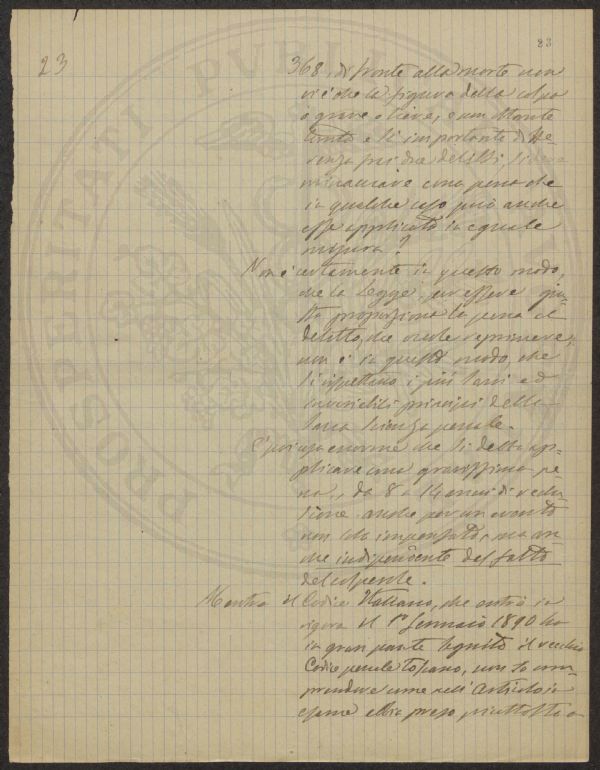 23
23
368, di fronte alla morte non
vi è che la figura della colpa
o grave o lieve, e non ostante
tanta e sì importante diffe-
renza fra due delitti, si deve
minacciare una pena che
in qualche caso può anche
esse applicata in eguale
misura?
Non è certamente in questo modo,
che la legge, per essere giu-
sta proporziona la pena al
delitto, che vuole reprimere;
non è in questo modo, che
si rispettano i più sani ed
principj della
Sana Scienza penale.
È poi cosa enorme che si debba ap-
plicare una gravissima pe
na, da 8 a 14 anni di reclu-
sione anche per un evento
non solo impensato, ma an
che indipendente dal fatto
del colpevole.
Mentre il Codice Italiano, che entrò in
vigore il 1º Gennaio 1890 ha
in gran parte seguito il vecchio
Codice penale toscano, non so com-
prendere come nell'Articolo in
esame abbia preso piuttosto a